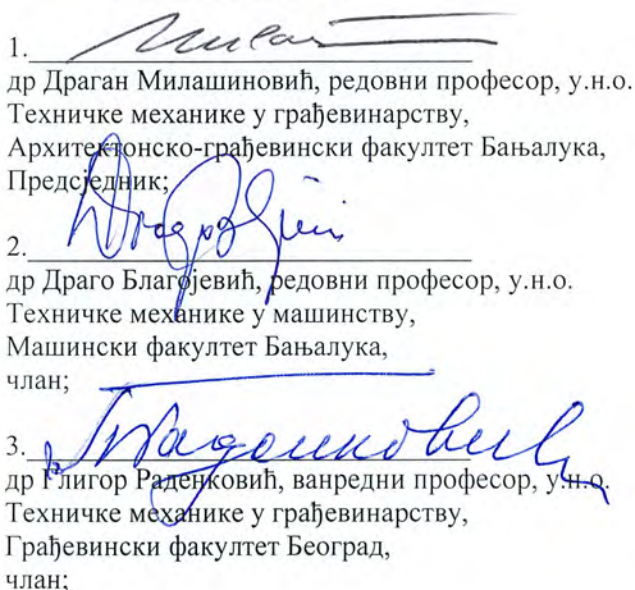 1.
др Драган Милашиновић, редовни професор, у.н.о.
Техничке механике у грађевинарству,
Архитектонско-грађевински факултет Бањалука,
Предсједник;
2.
др Драго Благојевић, редовни професор, у.н.о.
Техничке механике у машинству,
Машински факултет Бањалука,
члан;
3.
др Глигор Раденковић, ванредни професор, у.н.о.
Техничке механике у грађевинарству,
Грађевински факултет Београд,
члан;